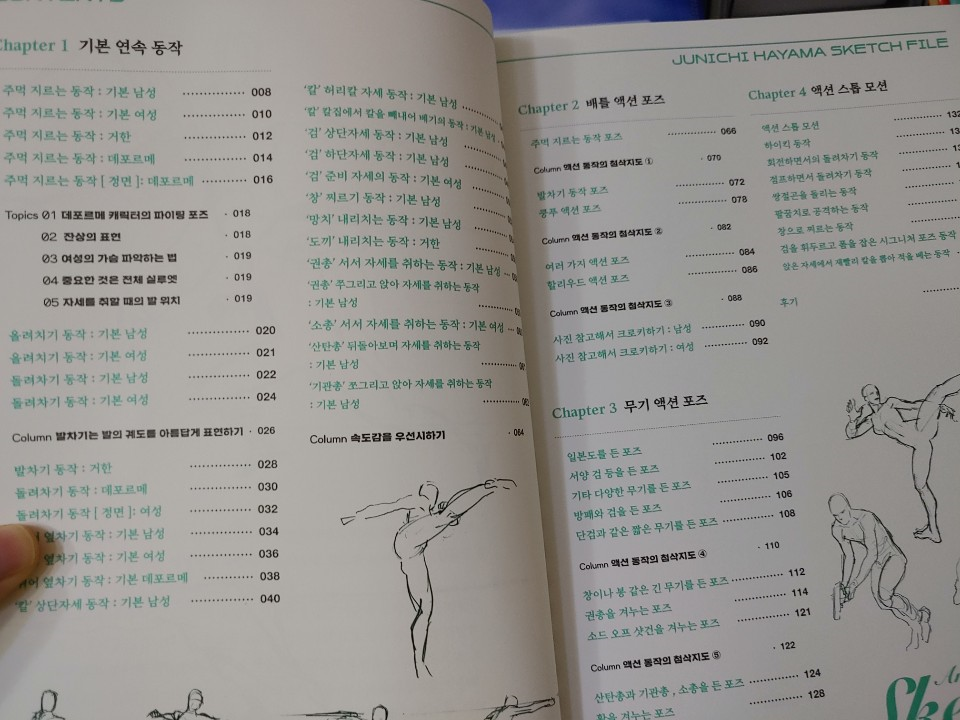 Chapter 1 기본 연속 동작
주먹 지르는 동작 : 기본 남성 008
주먹 지르는 동작 : 기본 여성 010
주먹 지르는 동작 : 거한 012
주먹 지르는 동작 : 데포르메 014
주먹 지르는 동작 [ 정면 ]: 데포르메 016
Topics 01 데포르메 캐릭터의 파이팅 포즈 · 018
02 잔상의 표현 · 018
03 여성의 가슴 파악하는 법 · 019
04 중요한 것은 전체 실루엣 · 019
05 자세를 취할 때의 발 위치 · 019
올려치기 동작 : 기본 남성 020
올려치기 동작 : 기본 여성 021
돌려차기 동작 : 기본 남성 022
돌려차기 동작 : 기본 여성 024
Column 발차기는 발의 궤도를 아름답게 표현하기 · 026
발차기 동작 : 거한 028
돌려차기 동작 : 데포르메 030
돌려차기 동작 [ 정면 ]: 여성 032
옆차기 동작 : 기본 남성 034
옆차기 동작 : 기본 여성 036
옆차기 동작 : 기본 데포르메 038
'칼' 상단자세 동작 : 기본 남성 040
'칼' 허리칼 자세 동작 : 기본 남성
'칼' 칼집에서 칼을 빼내어 베기의 동작 : 기본 남성
'검' 상단자세 동작 : 기본 남성
'검' 하단자세 동작 : 기본 남성
'검' 준비 자세의 동작 : 기본 여성
'창' 찌르기 동작 : 기본 남성
'망치' 내리치는 동작 : 기본 남성
'도끼' 내리치는 동작 : 거한
'권총' 서서 자세를 취하는 동작 : 기본 남성
'권총' 쭈그리고 앉아 자세를 취하는 동작
: 기본 남성
'소총' 서서 자세를 취하는 동작 : 기본 여성
'산탄총' 뒤돌아보며 자세를 취하는 동작
: 기본 남성
'기관총' 쪼그리고 앉아 자세를 취하는 동작
: 기본 남성
Column 속도감을 우선시하기 · 064
JUNICHI HAYAMA SKETCH FILE
Chapter 2 배틀 액션 포즈
주먹 지르는 동작 포즈 066
Column 액션 동작의 첨삭지도 ① · 070
발차기 동작 포즈 072
쿵푸 액션 포즈 078
Column 액션 동작의 첨삭지도 ② · 082
여러 가지 액션 포즈 084
할리우드 액션 포즈 086
Column 액션 동작의 첨삭지도 ③ · 088
사진 참고해서 크로키하기 : 남성 090
사진 참고해서 크로키하기 : 여성 092
Chapter 3 무기 액션 포즈
일본도를 든 포즈 096
서양 검 등을 든 포즈 102
기타 다양한 무기를 든 포즈 105
방패와 검을 든 포즈 106
단검과 같은 짧은 무기를 든 포즈 108
Column 액션 동작의 첨삭지도 ④ · 110
창이나 봉 같은 긴 무기를 든 포즈 112
권총을 겨누는 포즈 114
소드 오프 샷건을 겨누는 포즈 121
Column 액션 동작의 첨삭지도 ⑤ · 122
산탄총과 기관총 , 소총을 든 포즈 124
활을 겨누는 포즈 128
Chapter 4 액션 스톱 모션
액션 스톱 모션
하이킥 동작
회전하면서의 돌려차기 동작
점프하면서 돌려차기 동작
쌍절곤을 돌리는 동작
팔꿈치로 공격하는 동작
창으로 찌르는 동작
검을 휘두르고 폼을 잡은 시그니처 포즈 동작
앉은 자세에서 재빨리 칼을 뽑아 적을 베는 동작
후기